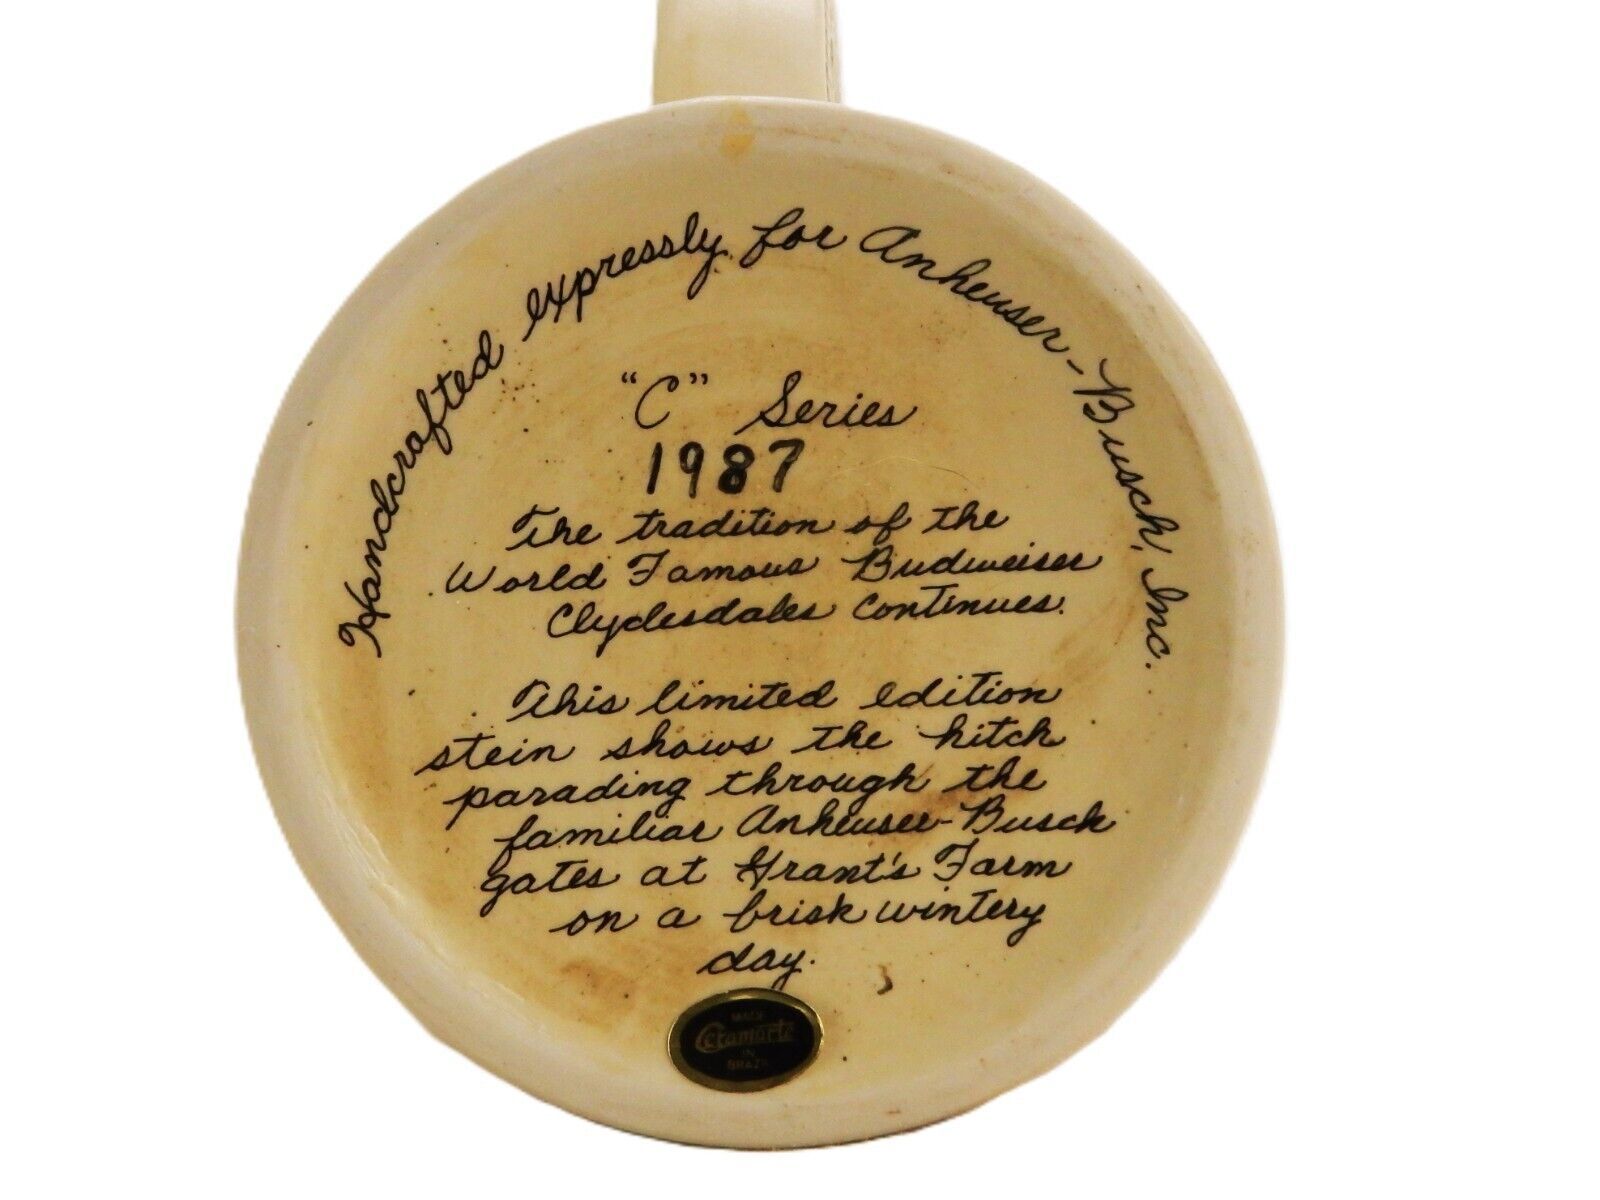 Handcrafted expressly for Anheuser-Busch, Inc.
"C" Series
1987
The tradition of the
World Famous Budweiser
Clydesdales Continues.
This limited edition
stein shows the hitch
parading through the
familiar Anheuser-Busch
gates at Grant's Farm
on a brisk wintery
day.
MADE
Ceramarte
IN
BRAZIL